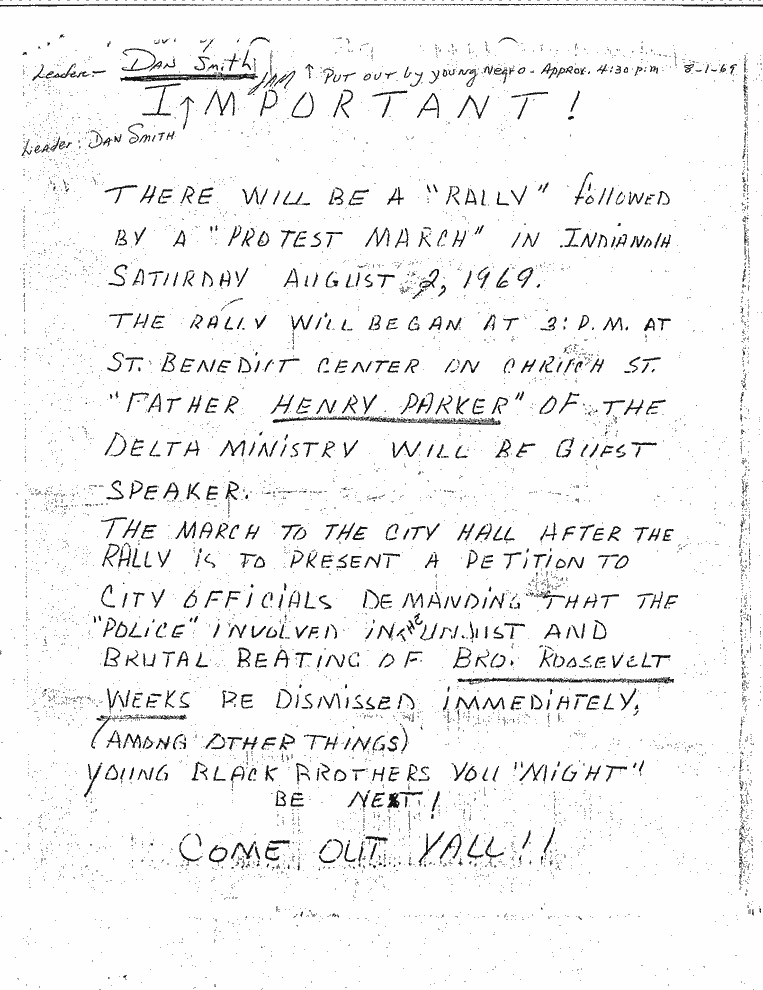 Leader - Dan Smith ↑ Put out by young Negro - Approx. 4:30 p.m 8-1-69
IMPORTANT!
Leader: Dan Smith
THERE WILL BE A "RALLY" followED
BY A "PROTEST MARCH" IN INDIANOLA
SATURDAY AUGUST 2, 1969.
THE RALLY WILL BEGAN AT 3: P.M. AT
ST. BENEDICT CENTER ON CHURCH ST.
"FATHER HENRY PARKER" OF THE
DELTA MINISTRY WILL BE GUEST
SPEAKER.
THE MARCH TO THE CITY HALL AFTER THE
RALLY IS TO PRESENT A PETITION TO
CITY OFFICIALS DEMANDING THAT THE
"POLICE" INVOLVED IN THE UNJUST AND
BRUTAL BEATING OF BRO. ROOSEVELT
WEEKS BE DISMISSED IMMEDIATELY,
(AMONG OTHER THINGS)
YOUNG BLACK BROTHERS YOU "MIGHT"
BE NEXT!
COME OUT YALL!!